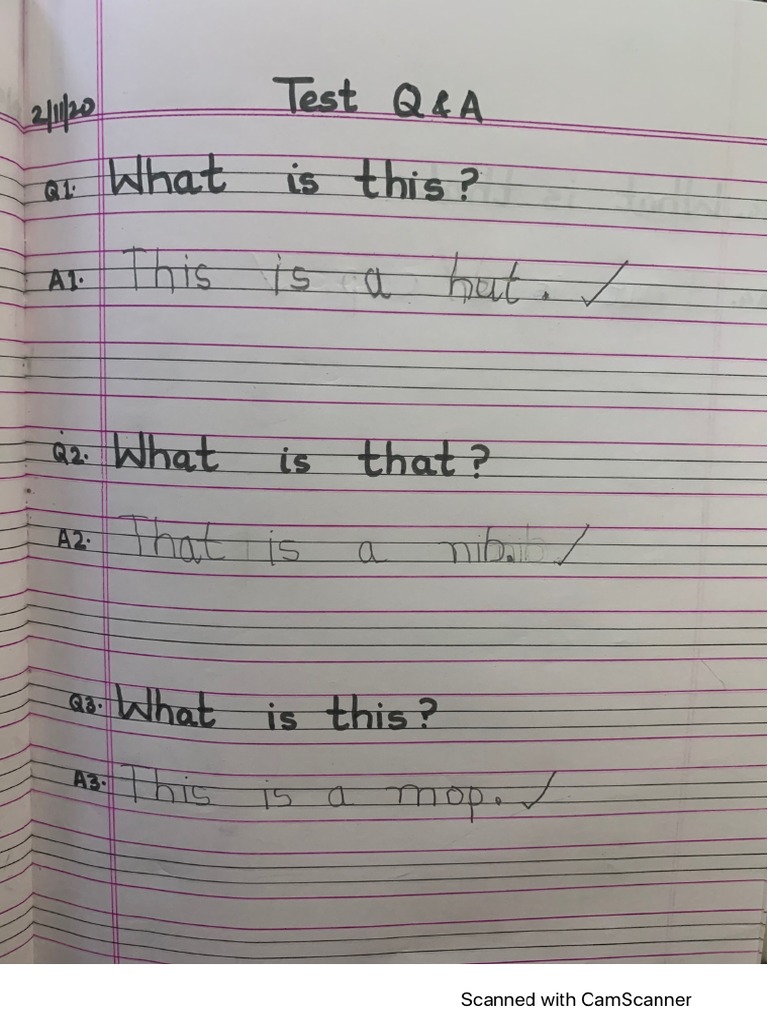 2/11/20 Test Q & A
Q1. What is this?
A1. This is a hat. ✓
Q2. What is that?
A2. That is a nib. ✓
Q3. What is this?
A3. This is a mop. ✓
Scanned with CamScanner